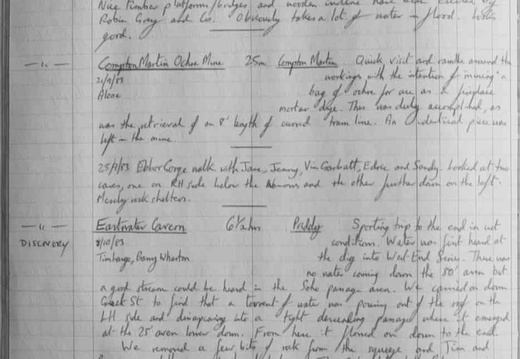 Nice timber platform/bridges and wooden incline have been erected by
Robin Gray and Co. Obviously takes a lot of water in flood. Looks
good.
Compton Martin Ochre Mine 25m Compton Martin Quick visit and ramble around the
21/9/83 workings with the intention of mining a
Alone bag of ochre for use as a fireplace
mortar dye. This was duly accomplished, as
was the retrieval of an 8' length of curved tram line. An identical piece was
left in the mine.
25/9/83 Ebbor Gorge walk with Jane, Jenny, Viv Garbutt, Edric and Sandy. Looked at two
caves, one on RH side below the and the other further down on the left.
Mostly rock shelters.
Eastwater Cavern 6½hr Priddy Sporting trip to the end in wet
DISCOVERY 8/10/83 conditions. Water was first heard at
Tim Large, Barry Wharton the dig into West End Series. There was
no water coming down the 80' aven but
a good stream could be heard in the Soho passage area. We carried on down
Greek St to find that a torrent of water was pouring out of the roof on the
LH side and disappearing into a tight descending passage where it emerged
at the 25' aven lower down. From here it flowed on down to the end.
We removed a few bits of rock from the squeeze and Tim and